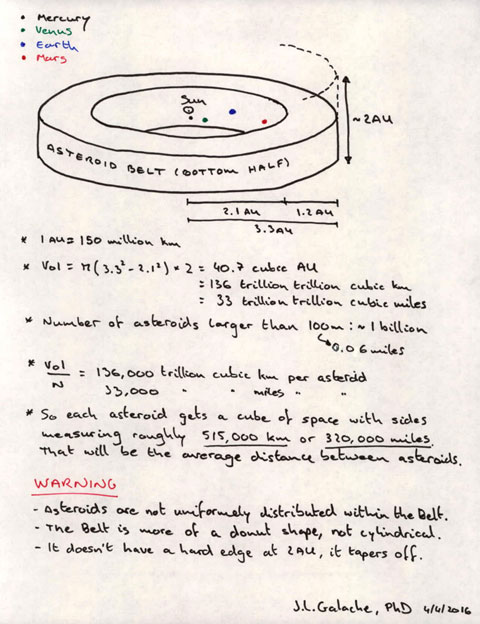 • Mercury
• Venus
• Earth
• Mars
Sun
~2AU
ASTEROID BELT (BOTTOM HALF)
2.1AU
1.2AU
3.3AU
* 1AU = 150 million km
* Vol = π(3.3² - 2.1²) * 2 = 40.7 cubic AU
= 136 trillion trillion cubic km
= 33 trillion trillion cubic miles
* Number of asteroids larger than 100m : ~ 1 billion
↳ 0.06 miles
* Vol/N = 136,000 trillion cubic km per asteroid
33,000 " " miles " "
* So each asteroid gets a cube of space with sides
measuring roughly 515,000 km or 320,000 miles.
That will be the average distance between asteroids.
WARNING
- Asteroids are not uniformely distributed within the Belt.
- The Belt is more of a donut shape, not cylindrical.
- It doesn't have a hard edge at 2AU, it tapers off.
J.L. Galache, PhD 4/4/2016